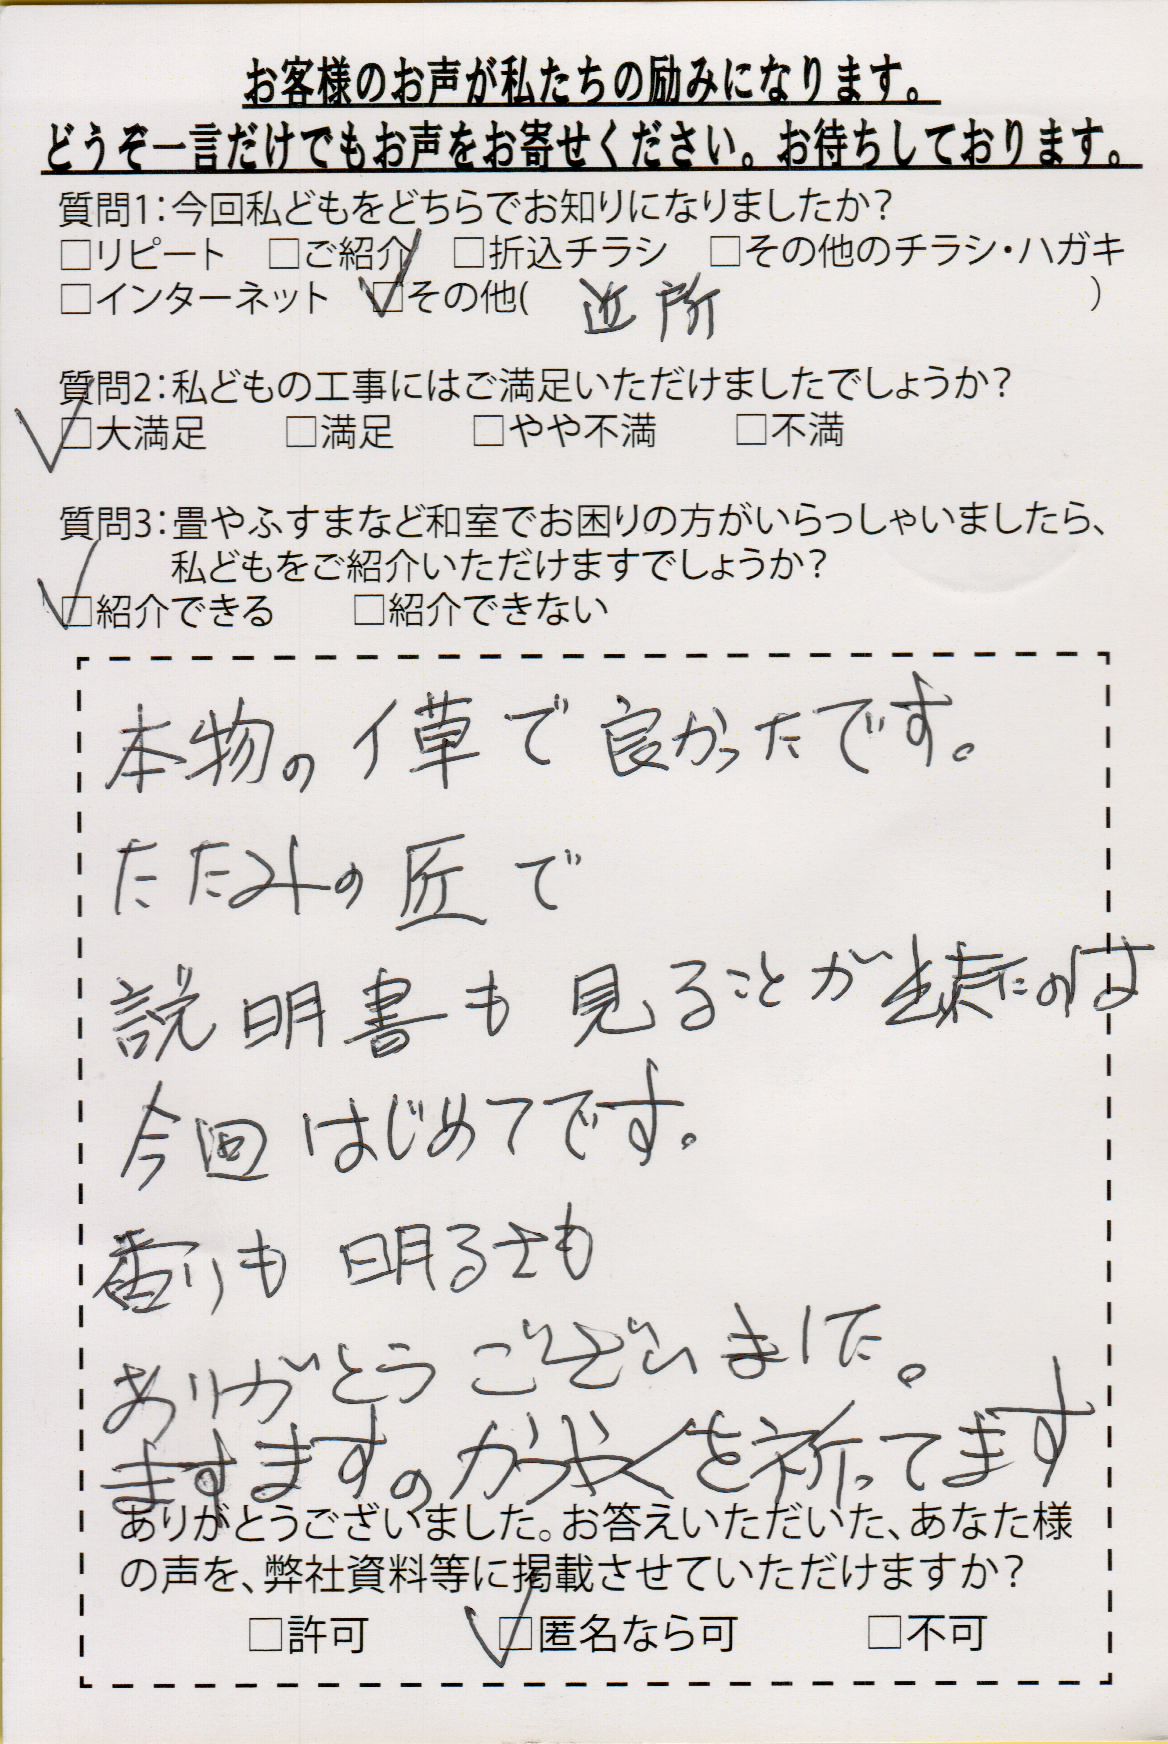 お客様のお声が私たちの励みになります。
どうぞ一言だけでもお声をお寄せください。お待ちしております。
質問1：今回私どもをどちらでお知りになりましたか？
□リピート □ご紹介 □折込チラシ □その他のチラシ・ハガキ
□インターネット ☑その他( 近所 )
質問2：私どもの工事にはご満足いただけましたでしょうか？
☑大満足 □満足 □やや不満 □不満
質問3：畳やふすまなど和室でお困りの方がいらっしゃいましたら、
私どもをご紹介いただけますでしょうか？
☑紹介できる □紹介できない
本物のイ草で良かったです。
たたみの匠で
説明書も見ることが出来たのは
今回はじめてです。
香りも明るさも
ありがとうございました。
ますますのかつやくを祈ってます
ありがとうございました。お答えいただいた、あなた様
の声を、弊社資料等に掲載させていただけますか？
□許可 ☑匿名なら可 □不可